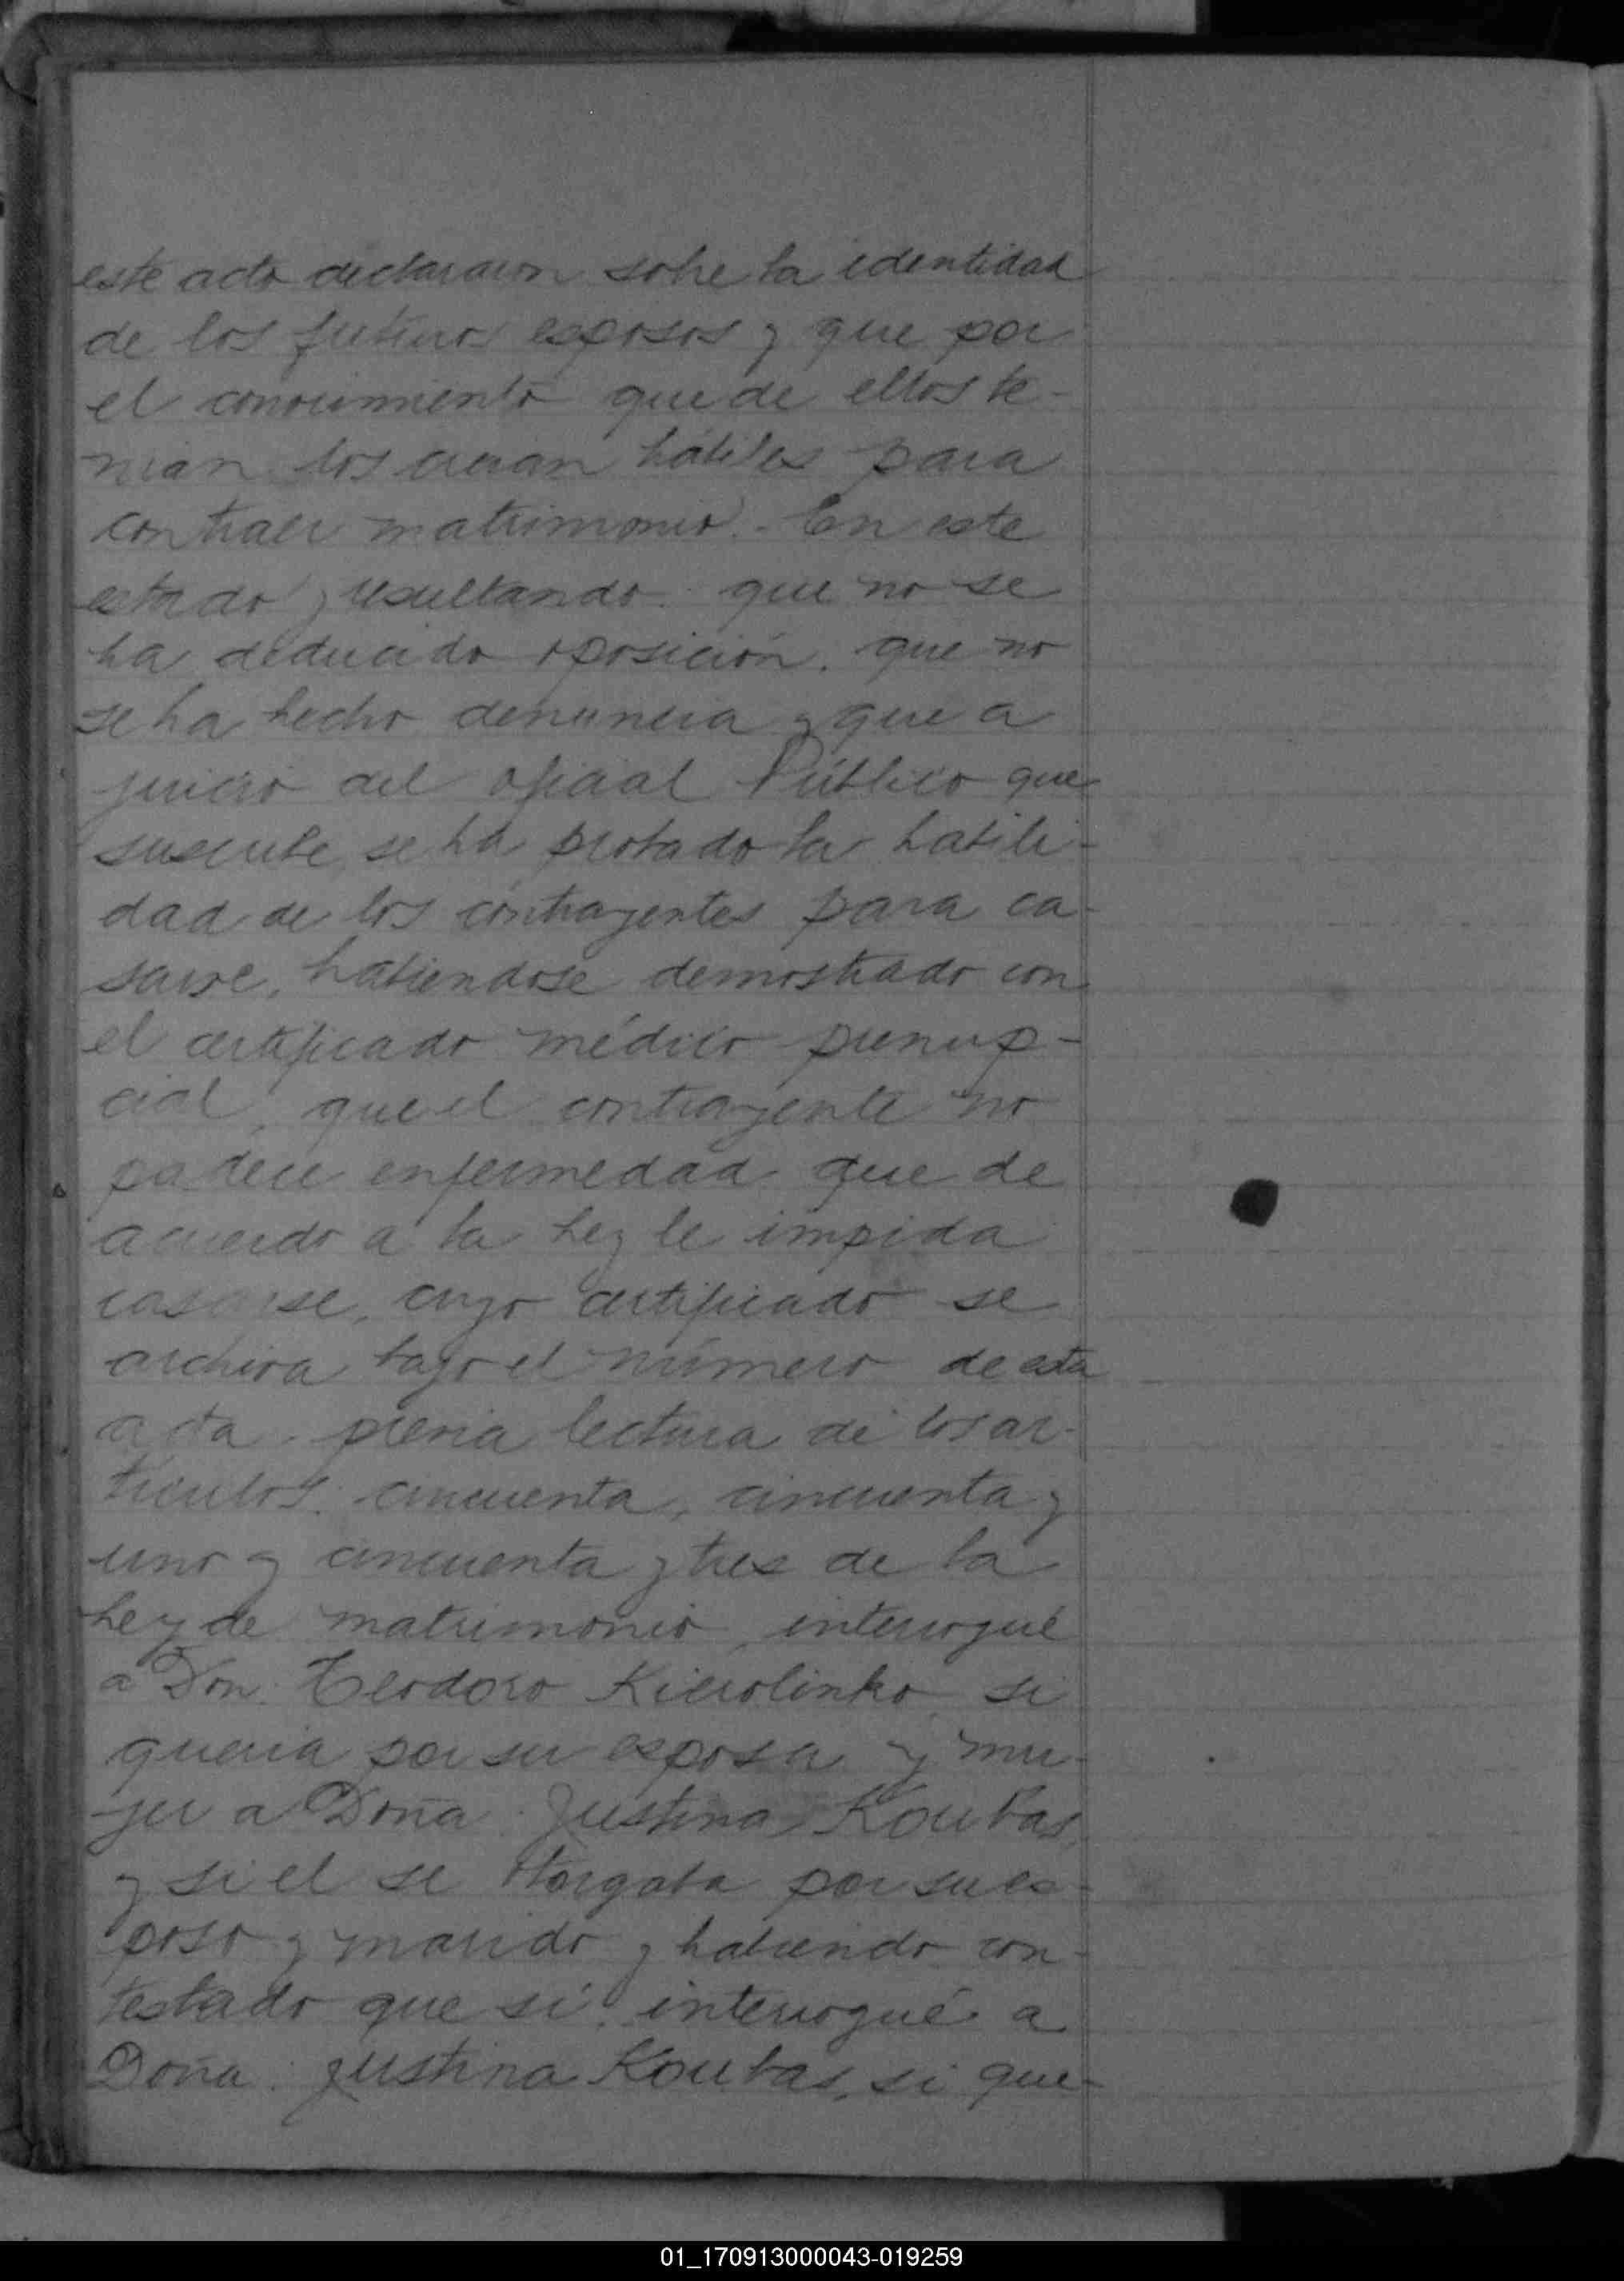 este acto declararon sobre la identidad
de los futuros esposos y que por
el conocimiento que de ellos te-
nian los creian hábiles para
contraer matrimonio.- En este
estado y resultando que no se
ha deducido oposición. que no
se ha hecho denuncia y que a
juicio del oficial Público que
suscribe, se ha probado la habili-
dad de los contrayentes para ca-
sarse, habiendose demostrado con
el certificado médico prenup-
cial, que el contrayente no
padece enfermedad que de
acuerdo a la Ley le impida
casarse, cuyo certificado se
archiva bajo el número de esta
acta. previa lectura de los ar-
tículos. cincuenta, cincuenta y
uno y cincuenta y tres de la
Ley de matrimonio, interrogué
a Don. Teodoro Kierolinko si
queria por su esposa y mu-
jer a Doña. Justina Koubas,
y si el se otorgaba por su es-
poso y marido y habiendo con-
testado que sí, interrogué a
Doña. Justina Koubas, si que-
01_170913000043-019259